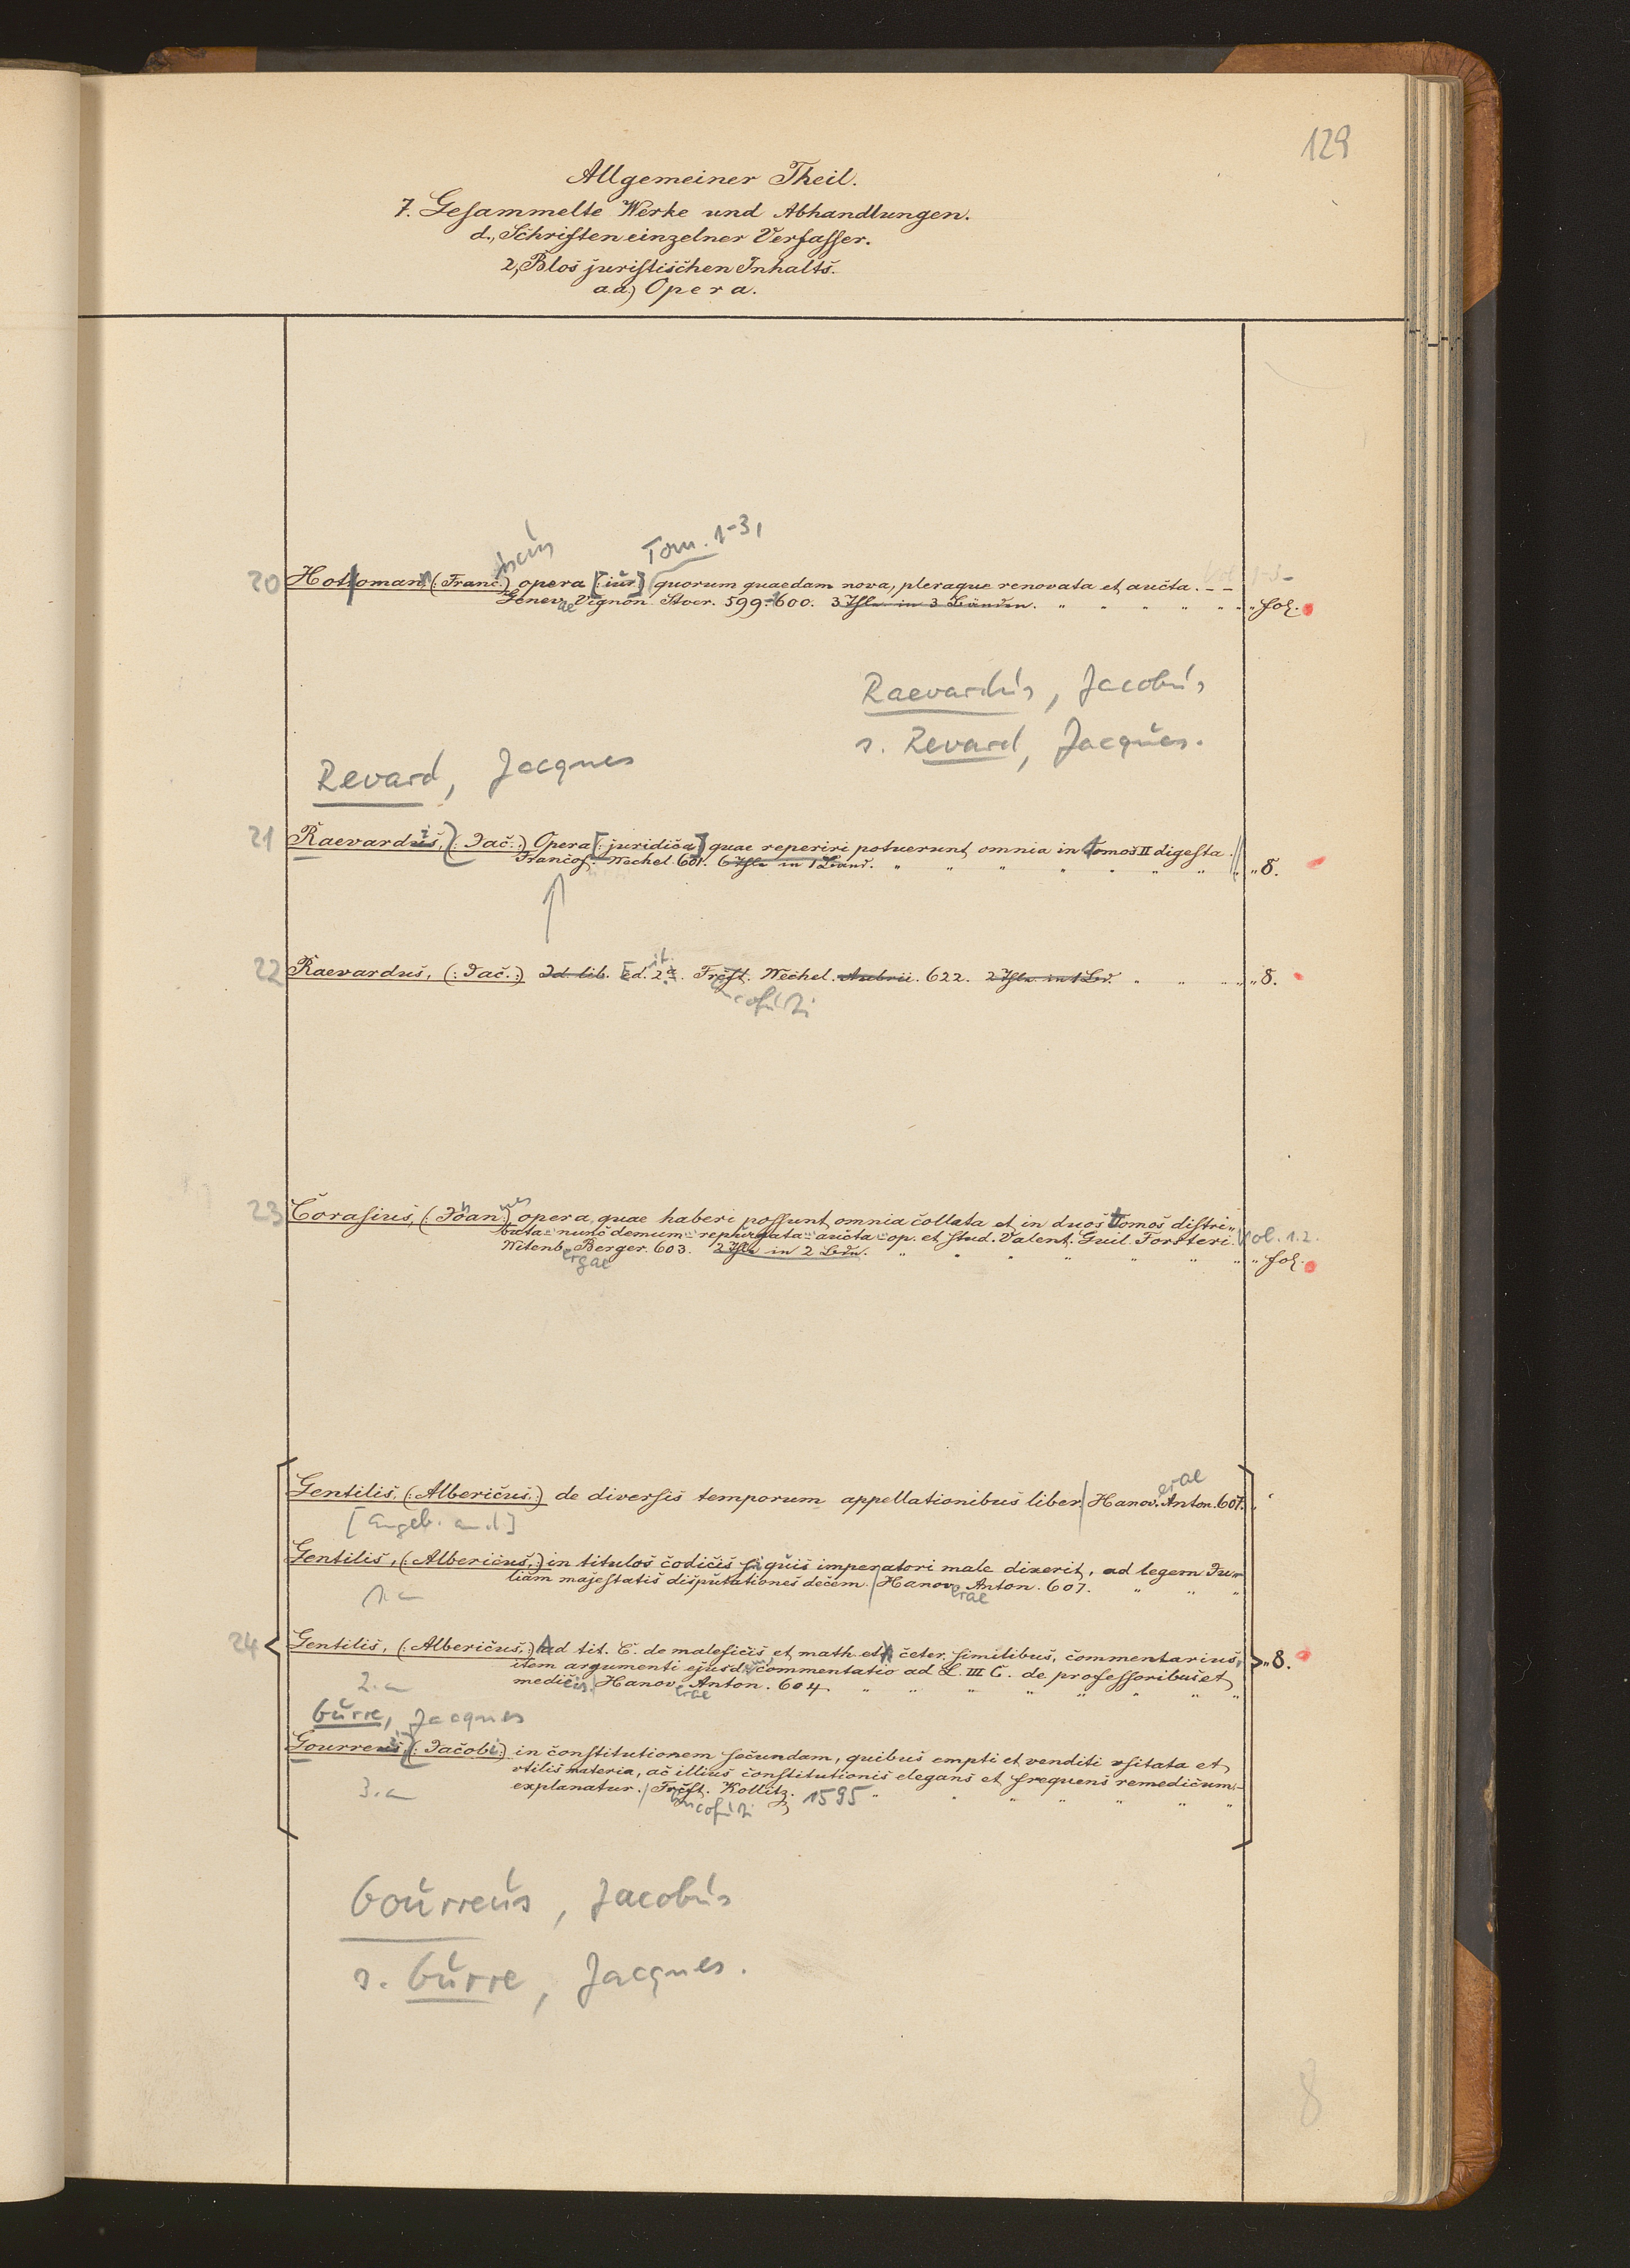 129
Allgemeiner Theil.
7. Gesammelte Werke und Abhandlungen.
d., Schriften einzelner Verfasser.
2, Blos juristischen Inhalts.
a.a) Opera.
Tom. 1-3,
20 Hottoman (: Franc.) opera [: iur.] quorum quaedam nova, pleraque renovata et aucta. - -
Genevae Vignon Stoer. 599-600. 3 Thle in 3 Bänden. " " " " " " fol.
Raevardus, Jacobus
s. Revard, Jacques.
Revard, Jacques
21 Raevardus, (: Jac.:) Opera [: juridica] quae reperiri potuerunt omnia in tomos II digesta.
Francof. Wechel. 601. 6 Thle in 1 Band. " " " " " " " " 8.
22 Raevardus, (: Jac.:) Id. lib. Ed. 2a. Frcft. Wechel. Aubrii. 622. 2 Thle in 1 Bd. " " " " 8.
cofurti
23 Corasius, (: Joan.) opera, quae haberi possunt omnia collata et in duos tomos distri-
buta nunc demum repurgata aucta op. et stud. Valent. Guil. Forsteri. Vol. 1.2.
Witenb. Berger. 603. 2 Thle in 2 Bdn. " " " " " " fol.
ergae
erae
Gentilis, (: Albericus,:) de diversis temporum appellationibus liber. Hanov. Anton. 607.
[Angeb. an 1]
Gentilis, (: Albericus,:) in titulos codicis si quis imperatori male dixerit, ad legem Ju-
liam majestatis disputationes decem. Hanov. Anton. 607. " " "
erae
1. a
24 Gentilis, (: Albericus,:) Ad tit. C. de maleficis et math. et ceter. similibus, commentarius, " 8.
item argumenti ejusd. commentatio ad L. III C. de professoribus et
medicis. Hanov. Anton. 604 " " " " " " "
erae
2. a
Gurre, Jacques
Gourreus, (: Jacob:) in constitutionem secundam, quibus empti et venditi vsitata et
vtilis materia, ac illius constitutionis elegans et frequens remedicum
explanatur. Frcft. Kollitz. 1595 " " " " " " "
cofurti
3. a
Gourreus, Jacobus
s. Gurre, Jacques.
8